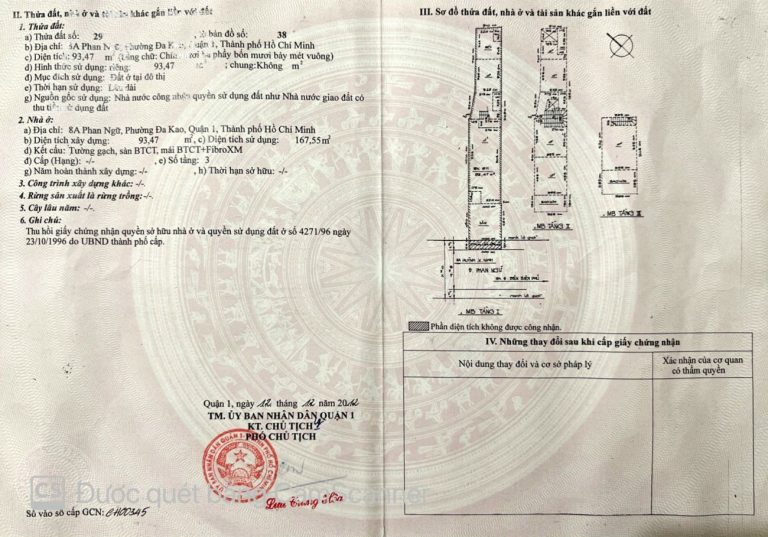 II. Thửa đất, nhà ở và tài sản khác gắn liền với đất
1. Thửa đất:
a) Thửa đất số: 29 bản đồ số: 38
b) Địa chỉ: 8A Phan Ngữ, Phường Đa Kao, Quận 1, Thành phố Hồ Chí Minh
c) Diện tích: 93,47 m² (bằng chữ: Chín phẩy bốn mươi bảy mét vuông)
d) Hình thức sử dụng: riêng: 93,47 m²; chung: Không m²
đ) Mục đích sử dụng: Đất ở tại đô thị
e) Thời hạn sử dụng: Lâu dài
g) Nguồn gốc sử dụng: Nhà nước công nhận quyền sử dụng đất như Nhà nước giao đất có
thu tiền sử dụng đất
2. Nhà ở:
a) Địa chỉ: 8A Phan Ngữ, Phường Đa Kao, Quận 1, Thành phố Hồ Chí Minh
b) Diện tích xây dựng: 93,47 m², c) Diện tích sử dụng: 167,55 m²
d) Kết cấu: Tường gạch, sàn BTCT, mái BTCT+FibroXM
đ) Cấp (Hạng): -/- , e) Số tầng: 3
g) Năm hoàn thành xây dựng: -/- , h) Thời hạn sở hữu: -/-
3. Công trình xây dựng khác: -/-.
4. Rừng sản xuất là rừng trồng: -/-.
5. Cây lâu năm: -/-.
6. Ghi chú:
Thu hồi giấy chứng nhận quyền sở hữu nhà ở và quyền sử dụng đất ở số 4271/96 ngày
23/10/1996 do UBND thành phố cấp.
Quận 1, ngày 12 tháng 12 năm 2012
TM. ỦY BAN NHÂN DÂN QUẬN 1
KT. CHỦ TỊCH
PHÓ CHỦ TỊCH
Lưu Trung Hòa
Số vào sổ cấp GCN: CH00345
CS Được quét bằng CamScanner
III. Sơ đồ thửa đất, nhà ở và tài sản khác gắn liền với đất
Đ. PHAN NGỮ
MB TẦNG I
MB TẦNG II
MB TẦNG III
Phần diện tích không được công nhận.
IV. Những thay đổi sau khi cấp giấy chứng nhận
Nội dung thay đổi và cơ sở pháp lý
Xác nhận của cơ quan
có thẩm quyền